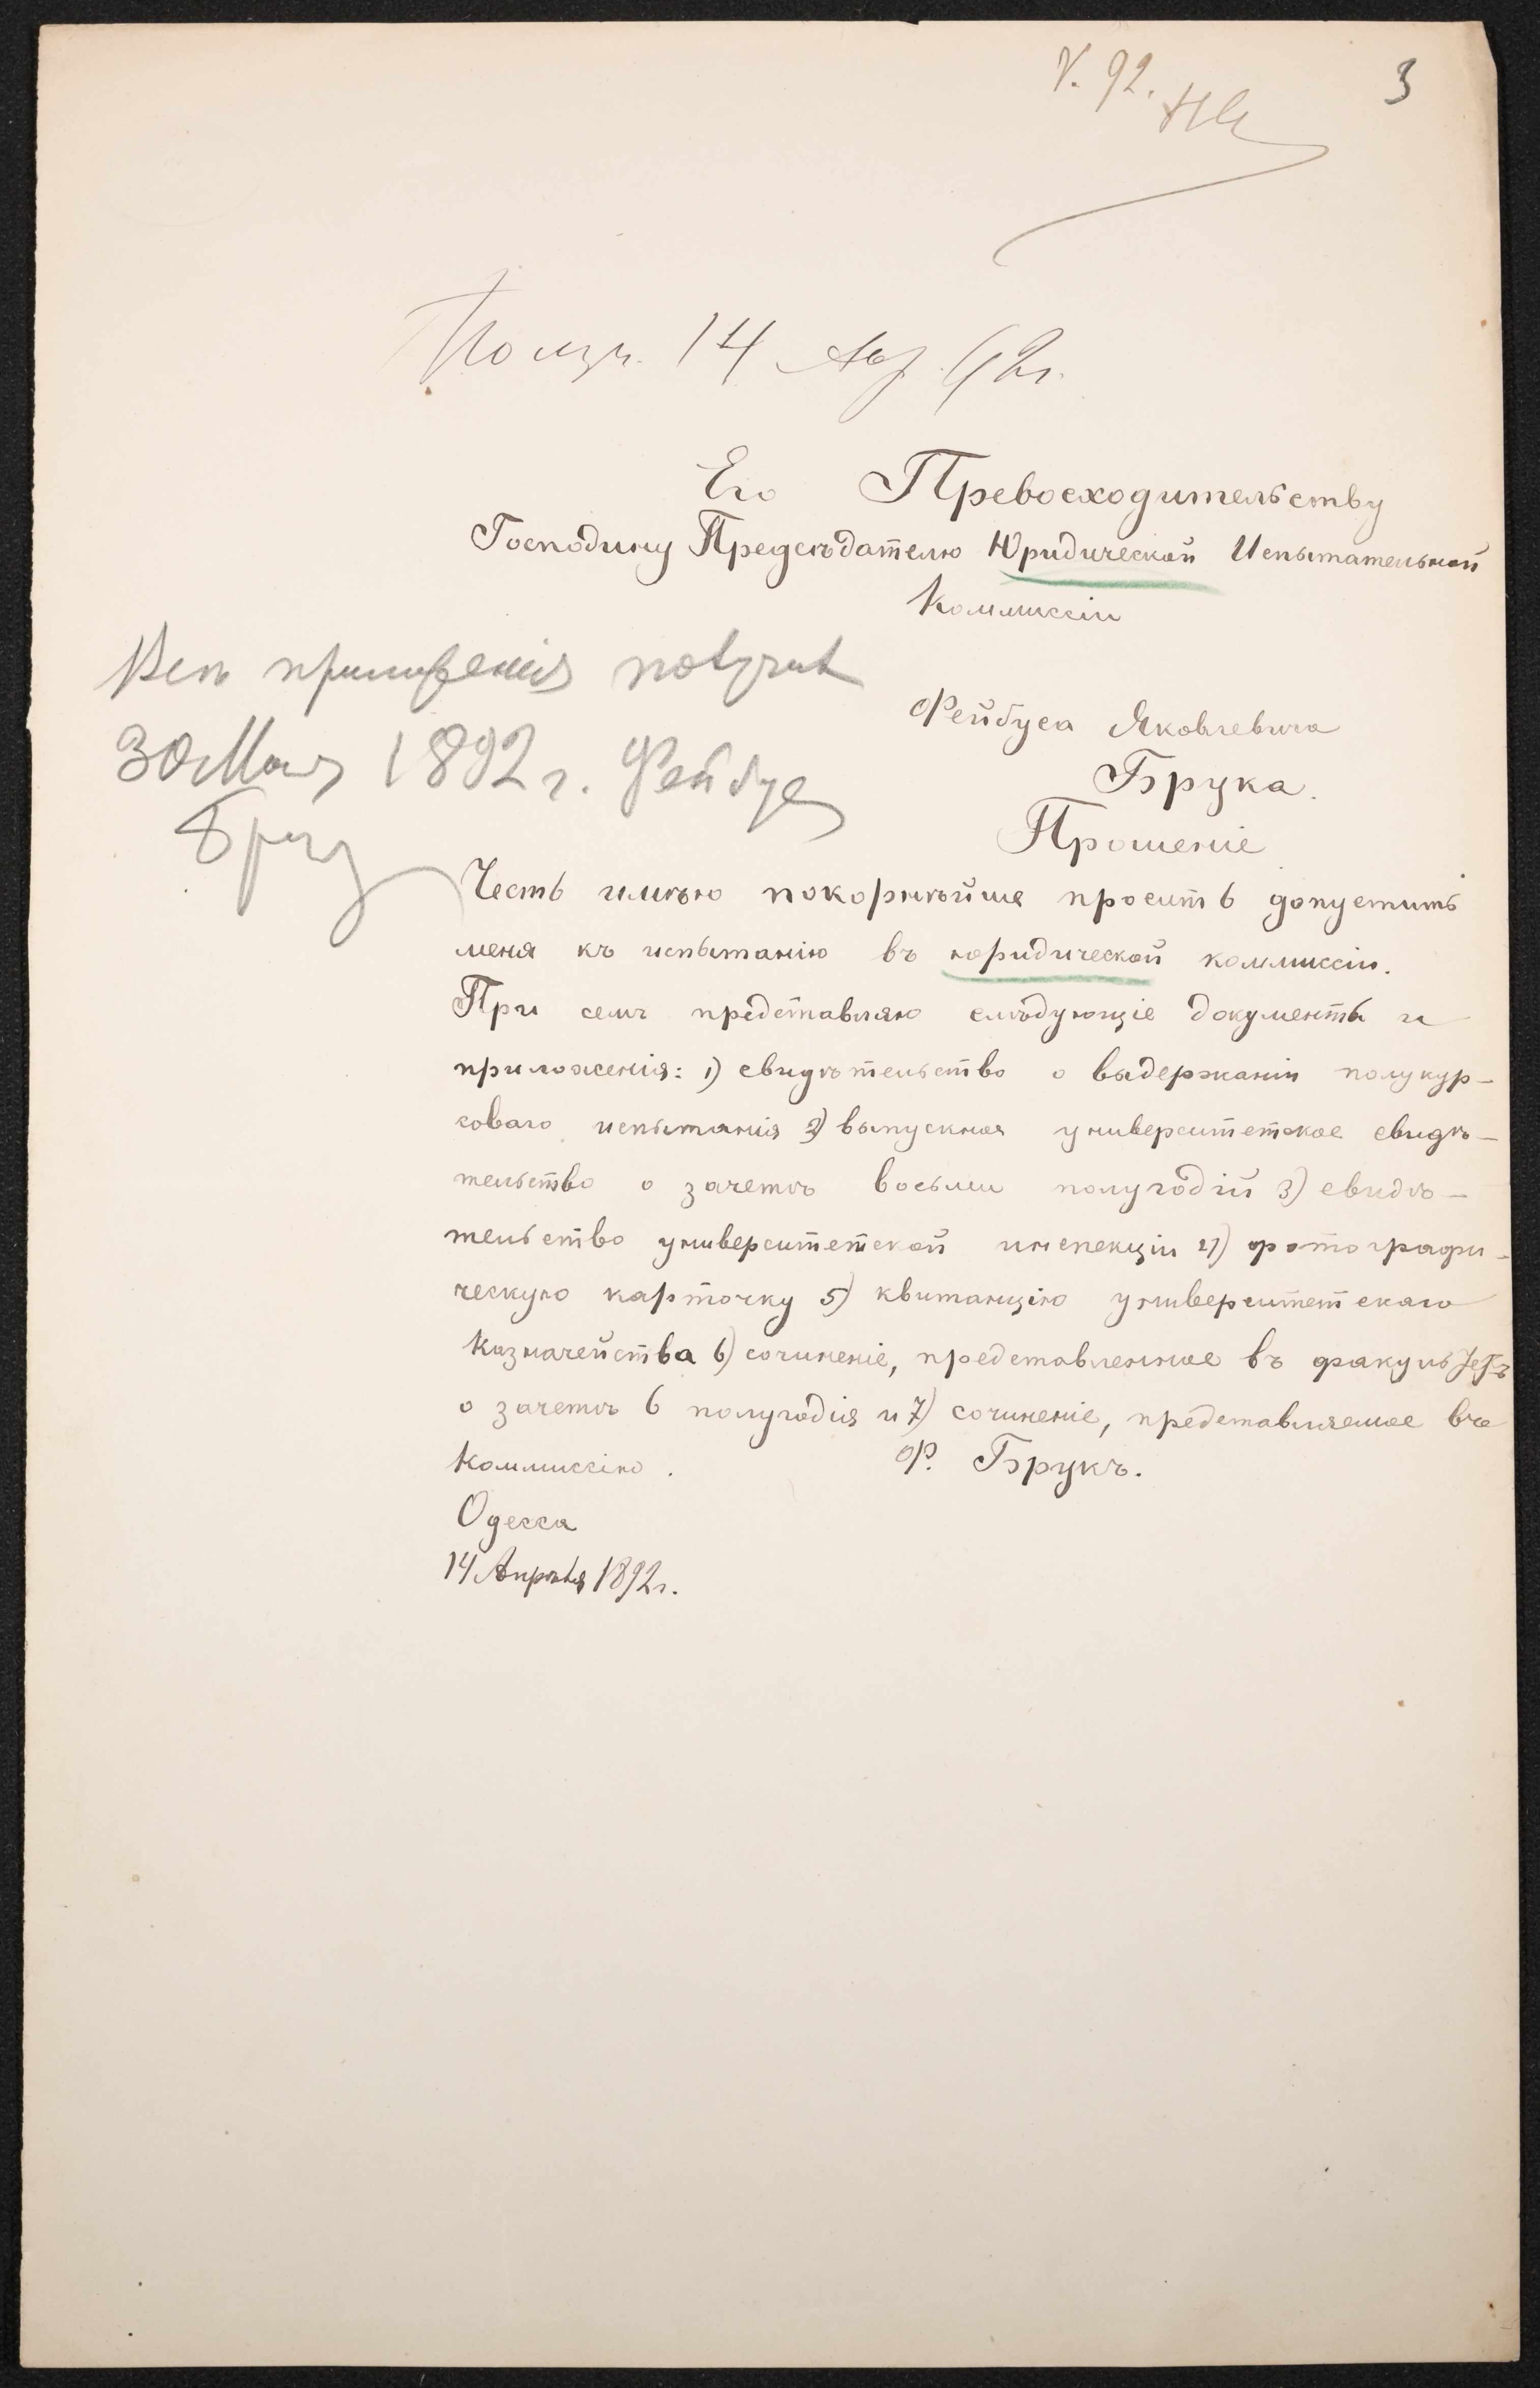 V. 92.
3
Получ. 14 Апр. 92 г.
Его Превосходительству
Господину Предсѣдателю Юридической Испытательной
Коммиссіи
Всѣ приложенія
30 Мая 1892 г. Фейбус
Брук
Фейбуса Яковлевича
Брука.
Прошеніе
Честь имѣю покорнѣйше просить допустить
меня къ испытанію въ юридической коммиссіи.
При семъ представляю слѣдующіе документы и
приложенія: 1) свидѣтельство о выдержаніи полукур-
соваго испытанія 2) выпускное университетское свидѣ-
тельство о зачетѣ восьми полугодій 3) свидѣ-
тельство университетской инспекціи 4) фотографи-
ческую карточку 5) квитанцію университетскаго
Казначейства 6) сочиненіе, представленное въ факультетъ
о зачетѣ 6 полугодія и 7) сочиненіе, представляемое въ
Коммиссію.
Ф. Брукъ.
Одесса
14 Апрѣля 1892 г.